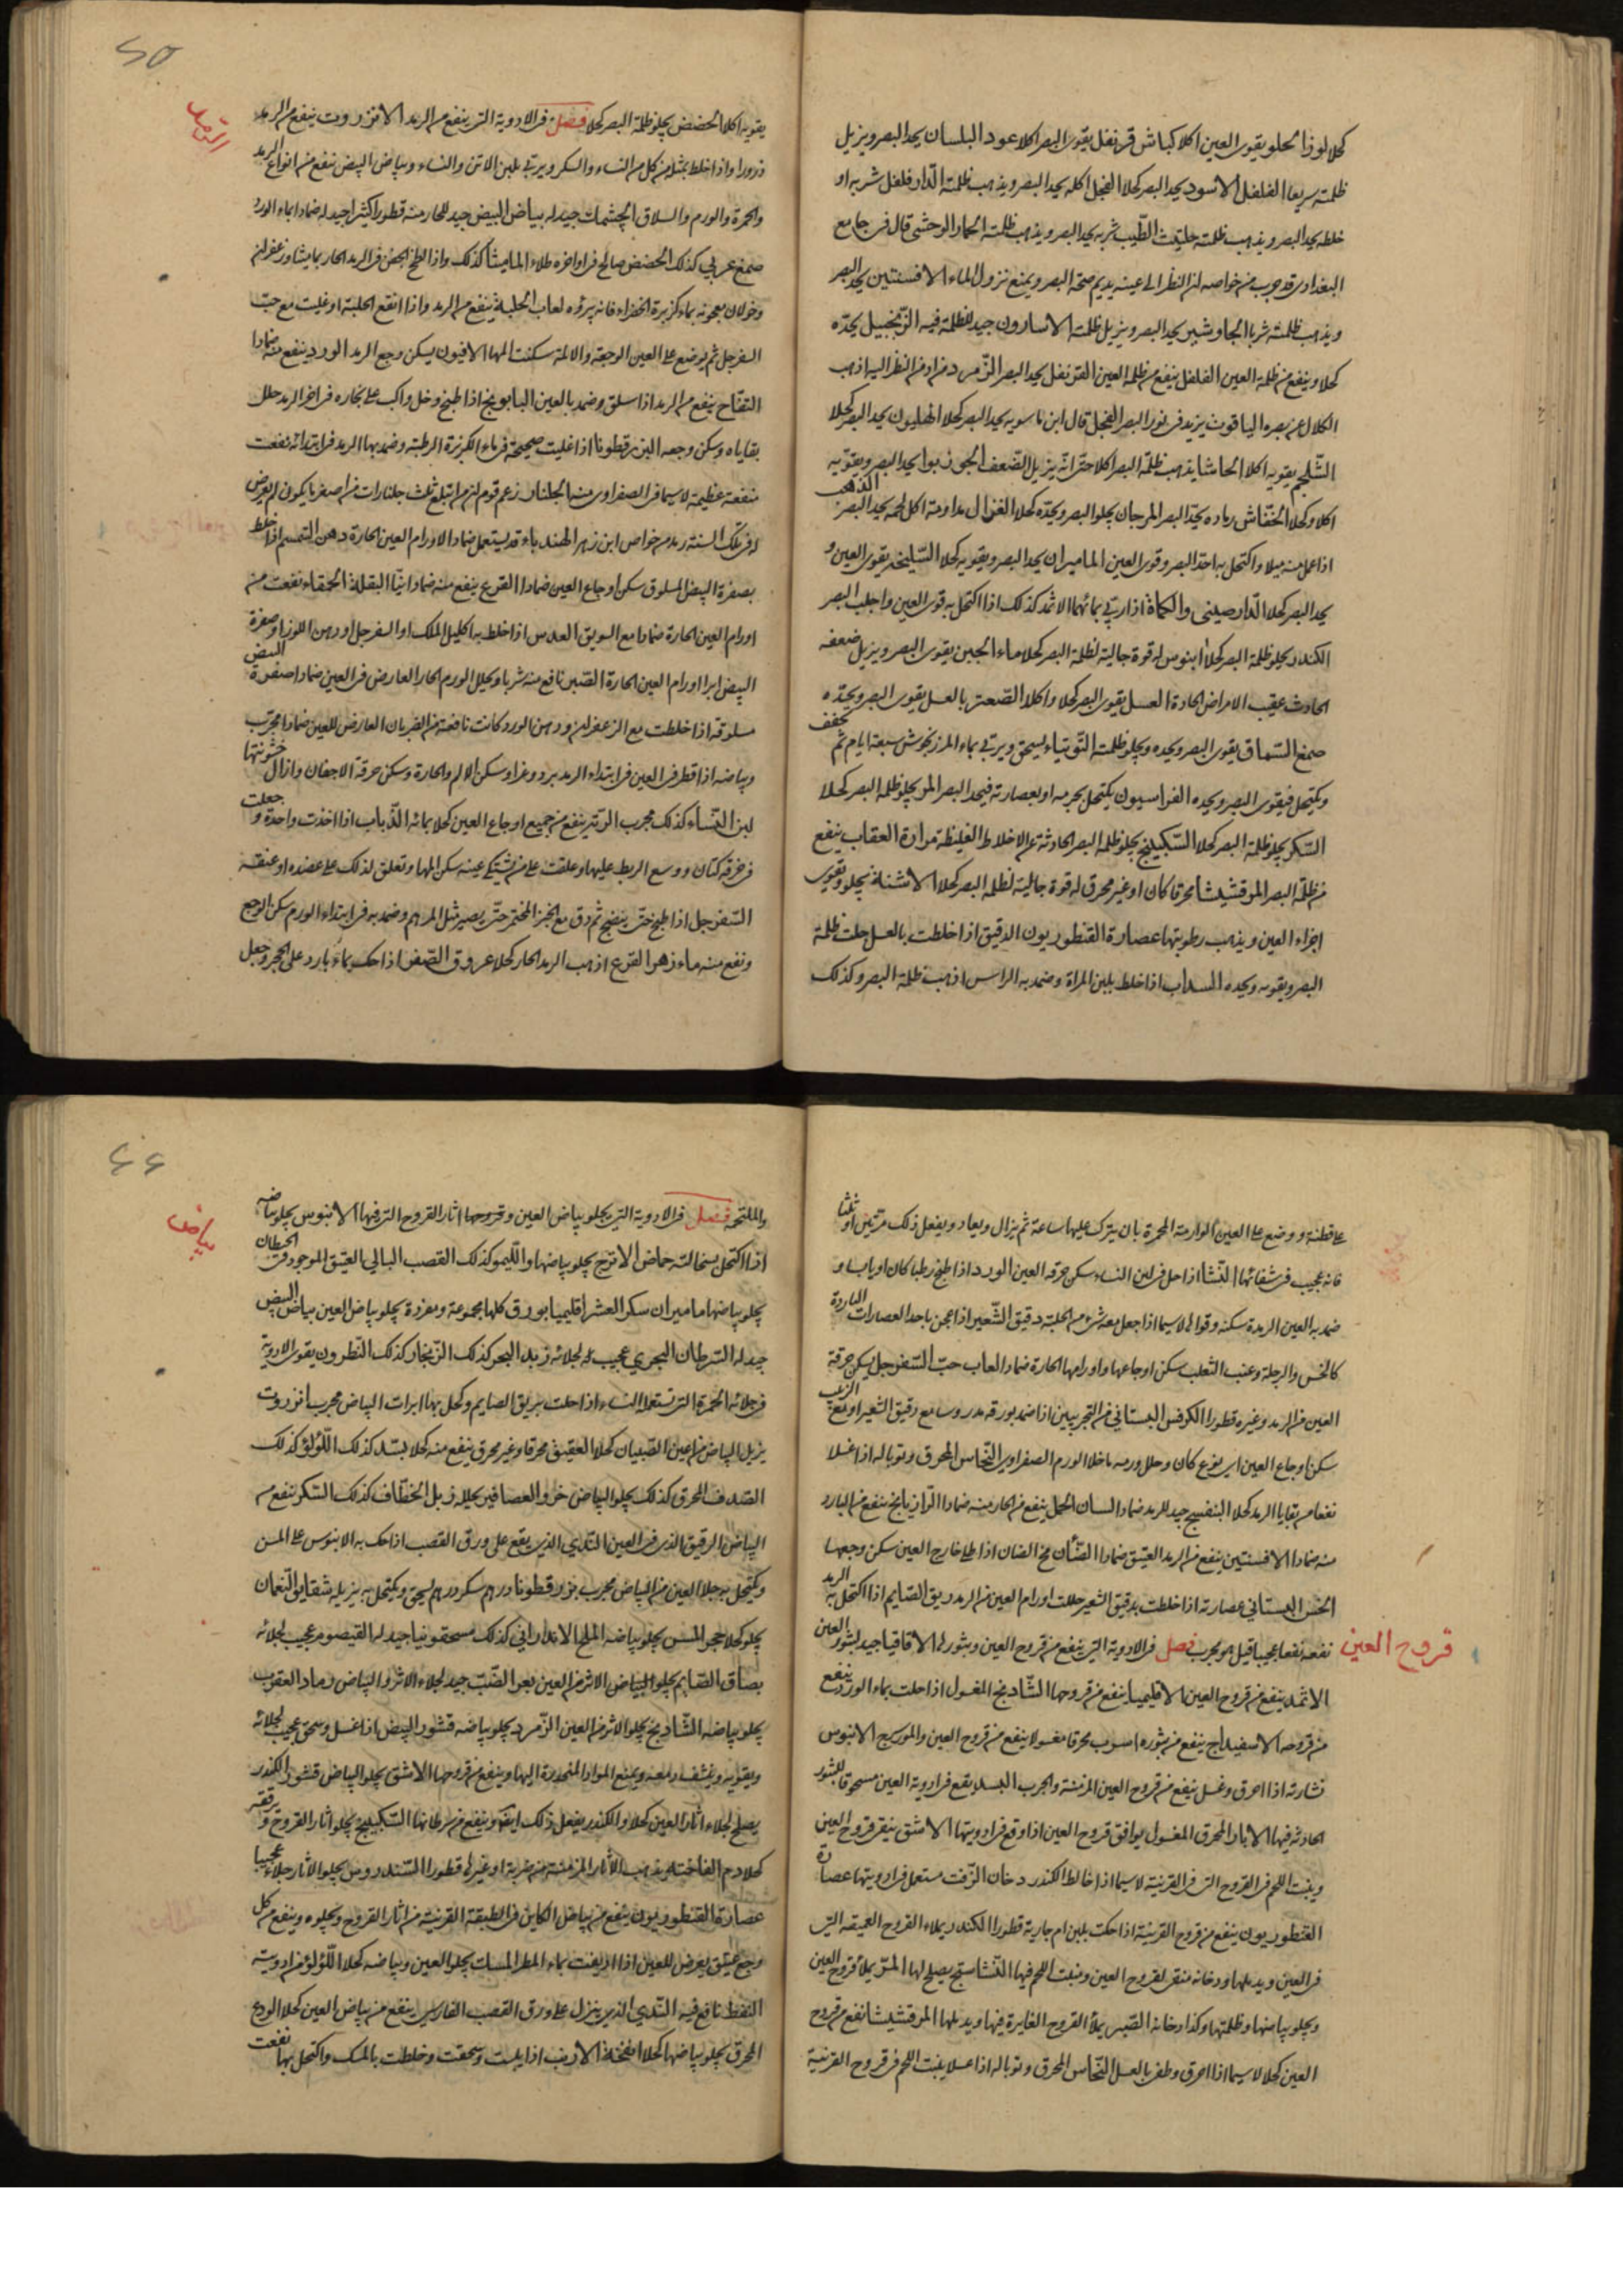 كحلا لوز الحلو يقوى العين اكلا كباش قرنفل يقوى البصر اكلا عود البلسان يحد البصر ويزيل
ظلمته سريعا الفلفل الاسود يحد البصر كحلا الفجل اكله يحد البصر ويذهب ظلمته الدار فلفل شربه او
خلطه يحد البصر ويذهب ظلمته حلتيت الطيب شربه يحد البصر ويذهب ظلمته الحمار الوحشى قال فى جامع
البغدادى قد جرب من خواصه ان النظر الى عينه يديم صحة البصر ويمنع نزول الماء الافسنتين يحد البصر
ويذهب ظلمته شربا الجاوشير يحد البصر ويزيل ظلمته الاسارون جيد لظلمة فيه الزنجبيل يحده
كحلا وينفع من ظلمة العين الفلفل ينفع من ظلمة العين القرنفل يحد البصر الزمرد من ادمن النظر اليه اذهب
الكلال عن بصره الياقوت يزيد فى نور البصر الفجل قال ابن ماسويه يحد البصر كحلا الهليون يحد البصر كحلا
الشلجم يقويه اكلا الحاشا يذهب ظلمة البصر اكلا حتى انه يزيل الضعف الجوزبوا يحد البصر ويقويه
اكلا وكحلا الخفاش رماده يحد البصر المرجان يجلو البصر ويحده كحلا الغزال مداومة اكل لحمه يحد البصر الذهب
اذا عمل منه ميلا واكتحل به احد البصر وقوى العين الماميران يحد البصر ويقويه كحلا السليخه يقوى العين و
يحد البصر كحلا الدارصينى والكماة اذا ربى بمائهما الاثمد كذلك اذا اكتحل به قوى العين واجلب البصر
الكندر يجلو ظلمة البصر كحلا ابنوس له قوة جالية لظلمة البصر كحلا ماء الجبن يقوى البصر ويزيل ضعفه
الحادث عقيب الامراض الحادة العسل يقوى البصر كحلا واكلا الصعتر بالعسل يقوى البصر ويحده
صمغ السماق يقوى البصر ويحده ويجلو ظلمته التوتياء يسحق ويربى بماء المرزنجوش سبعة ايام ثم يجفف
ويكتحل فيقوى البصر ويحده الفراسيون يكتحل بجرمه او بعصارته فيحد البصر المر يجلو ظلمة البصر كحلا
السكر يجلو ظلمة البصر كحلا السكبينج يجلو ظلمة البصر الحادثة عن الاخلاط الغليظة مرارة العقاب ينفع
من ظلمة البصر المرقشيشا محرقا كان او غير محرق له قوة جالية لظلمة البصر كحلا الاشنة يجلو ويقوى
اجزاء العين ويذهب رطوبتها عصارة القنطوريون الدقيق اذا خلطت بالعسل جلت ظلمة
البصر ويقويه ويحده السداب اذا خلط بلبن المراة وضمد به الراس اذهب ظلمة البصر وكذلك
٦٥
يقويه اكلا الحضض يجلو ظلمة البصر كحلا فصل فى الادوية التى ينفع من الرمد الانزروت ينفع من الرمد
ذرورا واذا خلط بمثله من كل من النشاء والسكر ويربى بلبن الاتن والنساء وبياض البيض نفع من انواع الرمد
والحمرة والورم والسلاق الجشمك جيد له بياض البيض جيد للحار منه قطورا كثيرا جيد له ضمادا ماء الورد
صمغ عربي كذلك الحضض صالح فى اواخره طلاء الماميثا كذلك واذا لطخ الجفن فى الرمد الحار بماميثا وزعفران
وخولان معجونه بماء كزبرة الخضراء فانه يبرؤه لعاب الحلبة ينفع من الرمد واذا انقع الحلبة او غليت مع حب
السفرجل ثم يوضع على العين الوجعة والالمة سكنت المها الافيون يسكن وجع الرمد الورد ينفع منه ضمادا
التفاح ينفع من الرمد اذا سلق وضمد بالعين البابونج اذا طبخ وخل واكب على بخاره فى اخر الرمد حلل
بقاياه وسكن وجعه البزرقطونا اذا غليت صحيحة فى ماء الكزبرة الرطبة وضمد بها الرمد فى ابتدائه نفعت
منفعة عظيمة لاسيما فى الصفراوى منه الجلنار زعم قوم ان من ابتلع ثلث جلنارات من اصغر ما يكون لم يعرض
له فى تلك السنة رمد من خواص ابن زهر الهندباء قد يستعمل ضمادا لاورام العين الحارة دهن السمسم اذا خلط
بصفرة البيض المسلوق سكن اوجاع العين ضمادا القرع ينفع منه ضمادا نيا البقلة الحمقاء نفعت من
اورام العين الحارة ضمادا مع السويق العدس اذا خلط به اكليل الملك او السفرجل او دهن اللوز او صفرة
البيض ابرا اورام العين الحارة الصبر نافع منه شربا ويحلل الورم الحار العارض فى العين ضمادا صفرة البيض
مسلوقة اذا خلطت مع الزعفران ودهن الورد كانت نافعة من الضربان العارض للعين ضمادا مجرب
وبياضه اذا قطر فى العين فى ابتداء الرمد برد وغرا وسكن الالم والحارة وسكن حرقة الاجفان وازال خشونتها
لبن النساء كذلك مجرب الوتد ينفع من جميع اوجاع العين كحلا بمائه الذباب اذا اخذت واحدة و جعلت
فى خرقة كتان ووسع الربط عليها وعلقت على من يشتكي عينه سكن المها وتعلق لذلك على عضده او عنقه
السفرجل اذا طبخ حتى ينضج ثم دق مع الخبز المختمر حتى يصير مثل المرهم وضمد به فى ابتداء الورم سكن الوجع
ونفع منه ماء زهر القرع اذهب الرمد الحار كحلا عروق الصفر اذا حك بماء بارد على الحجر وجعل
على قطنة ووضع على العين الوارمة المحمرة بان يترك عليها ساعة ثم يزال ويعاد ويفعل ذلك مرتين او ثلثا
فانه عجيب فى شفائها النشا اذا حل فى لبن النساء سكن حرقة العين الورد اذا طبخ رطبا كان او يابسا و
ضمد به العين الرمدة سكنه وقواها لاسيما اذا جعل معه شئ من الحلبة دقيق الشعير اذا عجن باحد العصارات الباردة
كالخس والرجلة وعنب الثعلب سكن اوجاعها واورامها الحارة ضمادا لعاب حب السفرجل يسكن حرقة
العين من الرمد وغيره قطورا الكرفس البستاني من التجربيين اذا ضمد بورقه مدروسا مع دقيق الشعير او مع الزبيب
سكن اوجاع العين اى نوع كان وحلل ورمه ما خلا الورم الصفراوى النحاس المحرق وتوباله اذا غسلا
نفعا من بقايا الرمد كحلا البنفسج جيد للرمد ضمادا لسان الحمل ينفع من الحار منه ضمادا الرازيانج ينفع من البارد
منه ضمادا الافسنتين ينفع من الرمد العتيق ضمادا الضأن مخ الضان اذا طلى خارج العين سكن وجعها
الخس البستاني عصارته اذا خلطت بدقيق الشعير حللت اورام العين من الرمد ريق الصايم اذا اكتحل به الرمد
قروح العين
نفعه نفعا عجيبا قيل هو مجرب فصل فى الادوية التى ينفع من قروح العين وبثورها الاقاقيا جيد لبثور العين
الاثمد ينفع من قروح العين الاقليميا ينفع من قروحها الشادنج المغسول اذا حلت بماء الورد نفع
من قروحه الاسفيداج ينفع من بثوره اسرب محرقا مغسولا ينفع من قروح العين والمورسرج الابنوس
نشارته اذا احرق وغسل ينفع من قروح العين المزمنة والجرب البسد يقع فى ادوية العين مسحوقا للبثور
الحادثة فيها الابار المحرق المغسول يوافق قروح العين اذا وقع فى ادويتها الاشق ينقى قروح العين
وينبت اللحم فى القروح التى فى القرنية لاسيما اذا خالط الكندر دخان الزفت مستعمل فى ادويتها عصارة
القنطوريون ينفع من قروح القرنية اذا حكت بلبن ام جارية قطورا الكندر يملاء القروح العميقه التى
فى العين ويدملها ودخانه منقى لقروح العين ومنبت اللحم فيها النشاستج يصلح لها المر يملأ قروح العين
ويجلو بياضها وظلمتها وكذا دخانه الصبر يملأ القروح الغايرة فيها ويدملها المرقشيشا نفع من قروح
العين كحلا لاسيما اذا احرق وطفى بالعسل النحاس المحرق وتوباله اذا غسلا ينبت اللحم فى قروح القرنية
٦٦
بياض
والملتحمه فصل فى الادوية التى يجلو بياض العين وقروحها اثار القروح التى فيها الابنوس يجلو بياضه
اذا اكتحل بحكاكته حماض الاترج يجلو بياضها والليمو كذلك القصب البالي العتيق الموجود فى الحيطان
يجلو بياضها ماميران سكر العشر اقليميا بورق كلها مجموعة ومفردة يجلو بياض العين بياض البيض
جيد له السرطان البحري عجيب له لجلائه زبد البحر كذلك الزنجار كذلك النطرون يقوى الادوية
فى جلائه الخمرة التى تستعملا النساء اذا حلت بريق الصايم وكحل بها ابرات البياض مجرب انزروت
يزيل البياض من اعين الصبيان كحلا العقيق محرقا وغير محرق ينفع منه كحلا بسد كذلك اللؤلؤ كذلك
الصدف المحرق كذلك يجلو البياض خرؤ العصافير يحلله زبل الخطاف كذلك السكر ينفع من
البياض الرقيق الذى فى العين الندي الذى يقع على ورق القصب اذا حك به الابنوس على المسن
ويكتحل به جلا العين من البياض مجرب بزرقطونا درهم سكر درهم يسحق ويكتحل به يزيله شقايق النعمان
يجلو كحلا حجر المسن يجلو بياضه الملح الاندراني كذلك مسحقونيا جيد له القيصوم عجيب لجلائه
بصاق الصايم يجلو البياض الاثر من العين بعر الضب جيد لجلاء الاثر والبياض رماد العقرب
يجلو بياضه الشادنج يجلو الاثر من العين الزمرد يجلو بياضه قشور البيض اذا غسل وسحق عجيب لجلائه
ويقويه وينشف دمعه ويمنع المواد المنحدرة اليها وينفع من قروحها الاشق يجلو البياض قشور الكندر
يصلح لجلاء اثار العين كحلا والكندر يفعل ذلك ايضا وينفع من سرطانها السكبينج يجلو اثار القروح ويرققه
كحلا دم الفاخته يذهب الأثار المزمنة من ضربة او غيرها قطورا السندروس يجلو الاثار جلاء عجيبا
عصارة القنطوريون ينفع من بياض الكاين فى الطبقة القرنية من اثار القروح ويجلوه وينفع من كل
وجع عتيق يعرض للعين اذا اديفت بماء المطر المسك يجلو العين وبياضه كحلا اللؤلؤ من ادويته
النفط نافع فيه الندي الذى ينزل على ورق القصب الفارسي ينفع من بياض العين كحلا الودع
المحرق يجلو بياضها كحلا انفحة الارنب اذا يبست وسحقت وخلطت بالمسك واكتحل بها نفعت